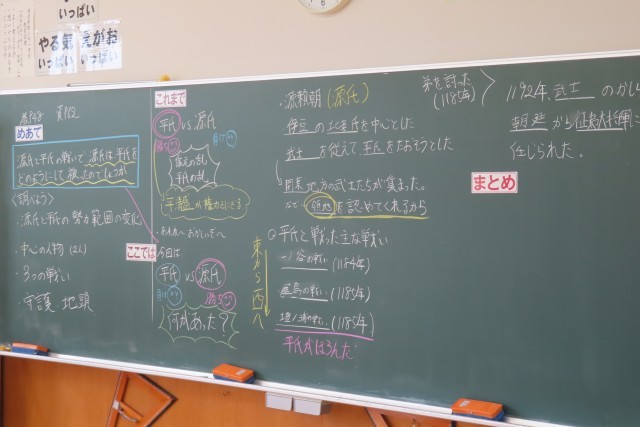 いっぱい
いっぱい
やる気
いっぱい
えがお
いっぱい
めあて
源氏と平氏の戦いで源氏は平氏を
どのようにして破ったのでしょうか
〈調べよう〉
・源氏と平氏の勢力範囲の変化
・中心の人物(2人)
・3つの戦い
・守護 地頭
これまで
平氏 vs 源氏
保元の乱
平治の乱
平清盛が権力をにぎる
ここでは
今回は
平氏 vs 源氏
何があった?
東から西へ
・源頼朝(源氏)
伊豆の北条氏を中心とした
武士を従えて平氏をたおそうとした
関東地方の武士たちが集まった。
を認めてくれるから
○平氏と戦った主な戦い
一ノ谷の戦い(1184年)
屋島の戦い(1185年)
壇ノ浦の戦い(1185年)
平氏がほろんだ
弟を討った
(1185年)
1192年、武士のかし
朝廷から征夷大将軍に
任じられた。
まとめ